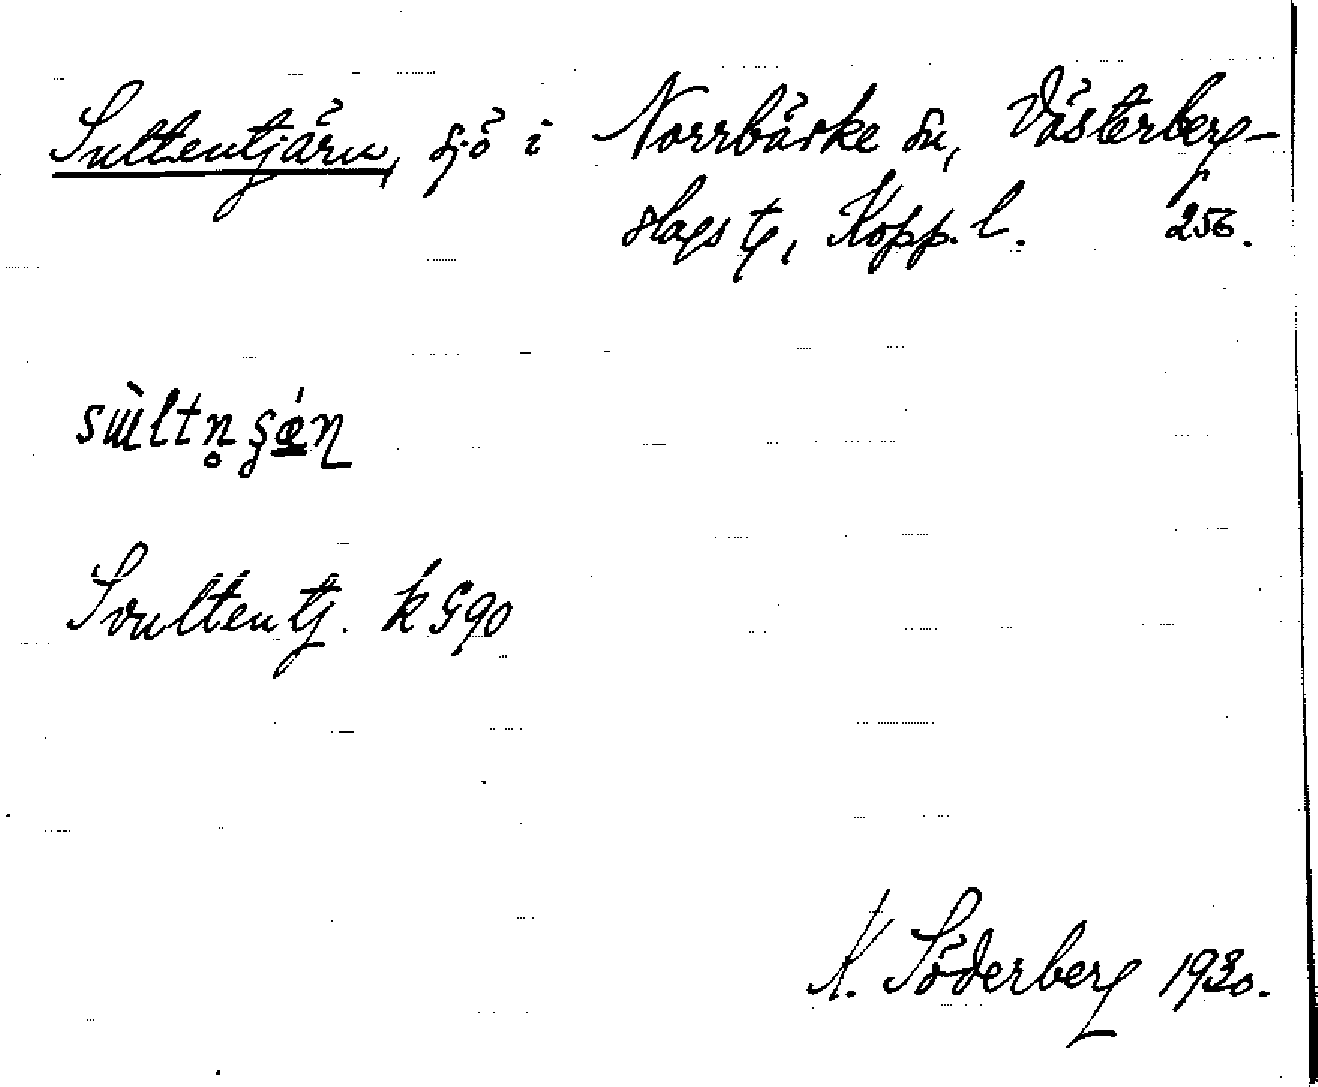 Sultentjärn, sjö i Norrbärke sn, Västerberg-
slags tg, Kopp. l. 256.
Svultentj. k G90
K. Söderberg 1930.